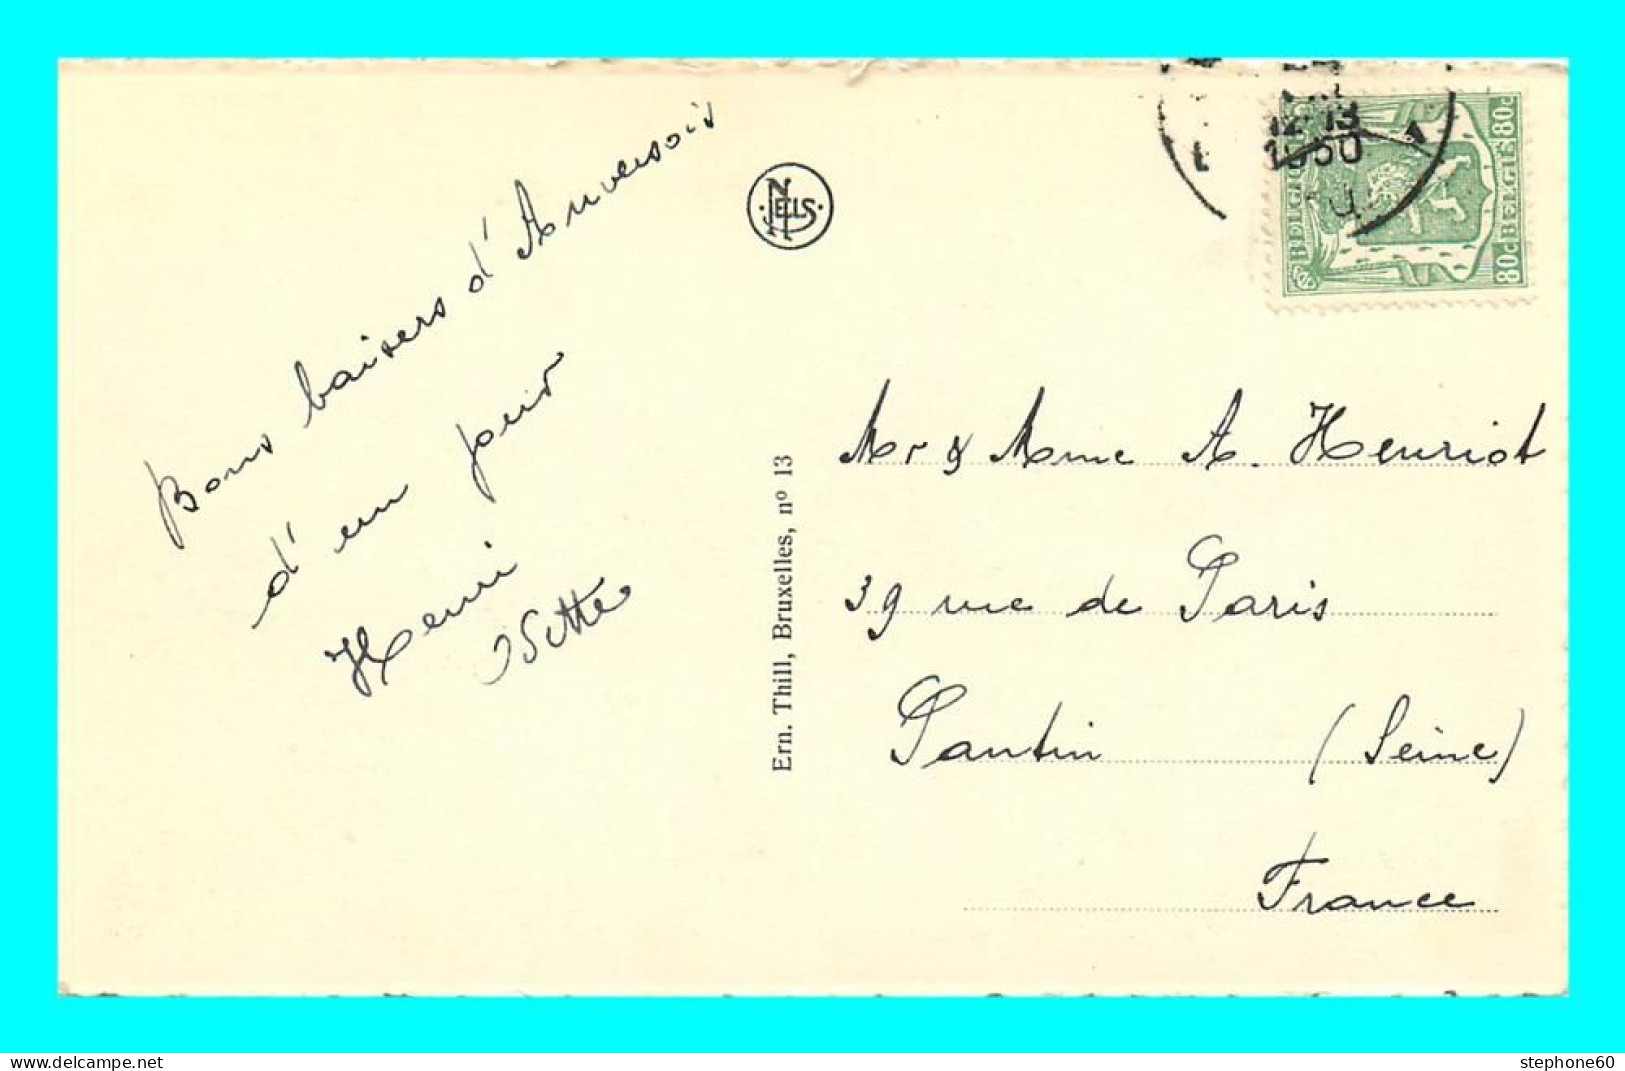 Bons baisers d'Anversois
d'un jour
Henri
Osette
NELS
Ern. Thill, Bruxelles, nº 13
12-13
1950
BELGIQUE 80c
80c BELGIË
Mr & Mme A. Henriot
39 rue de Paris
Pantin (Seine)
France
stephone60